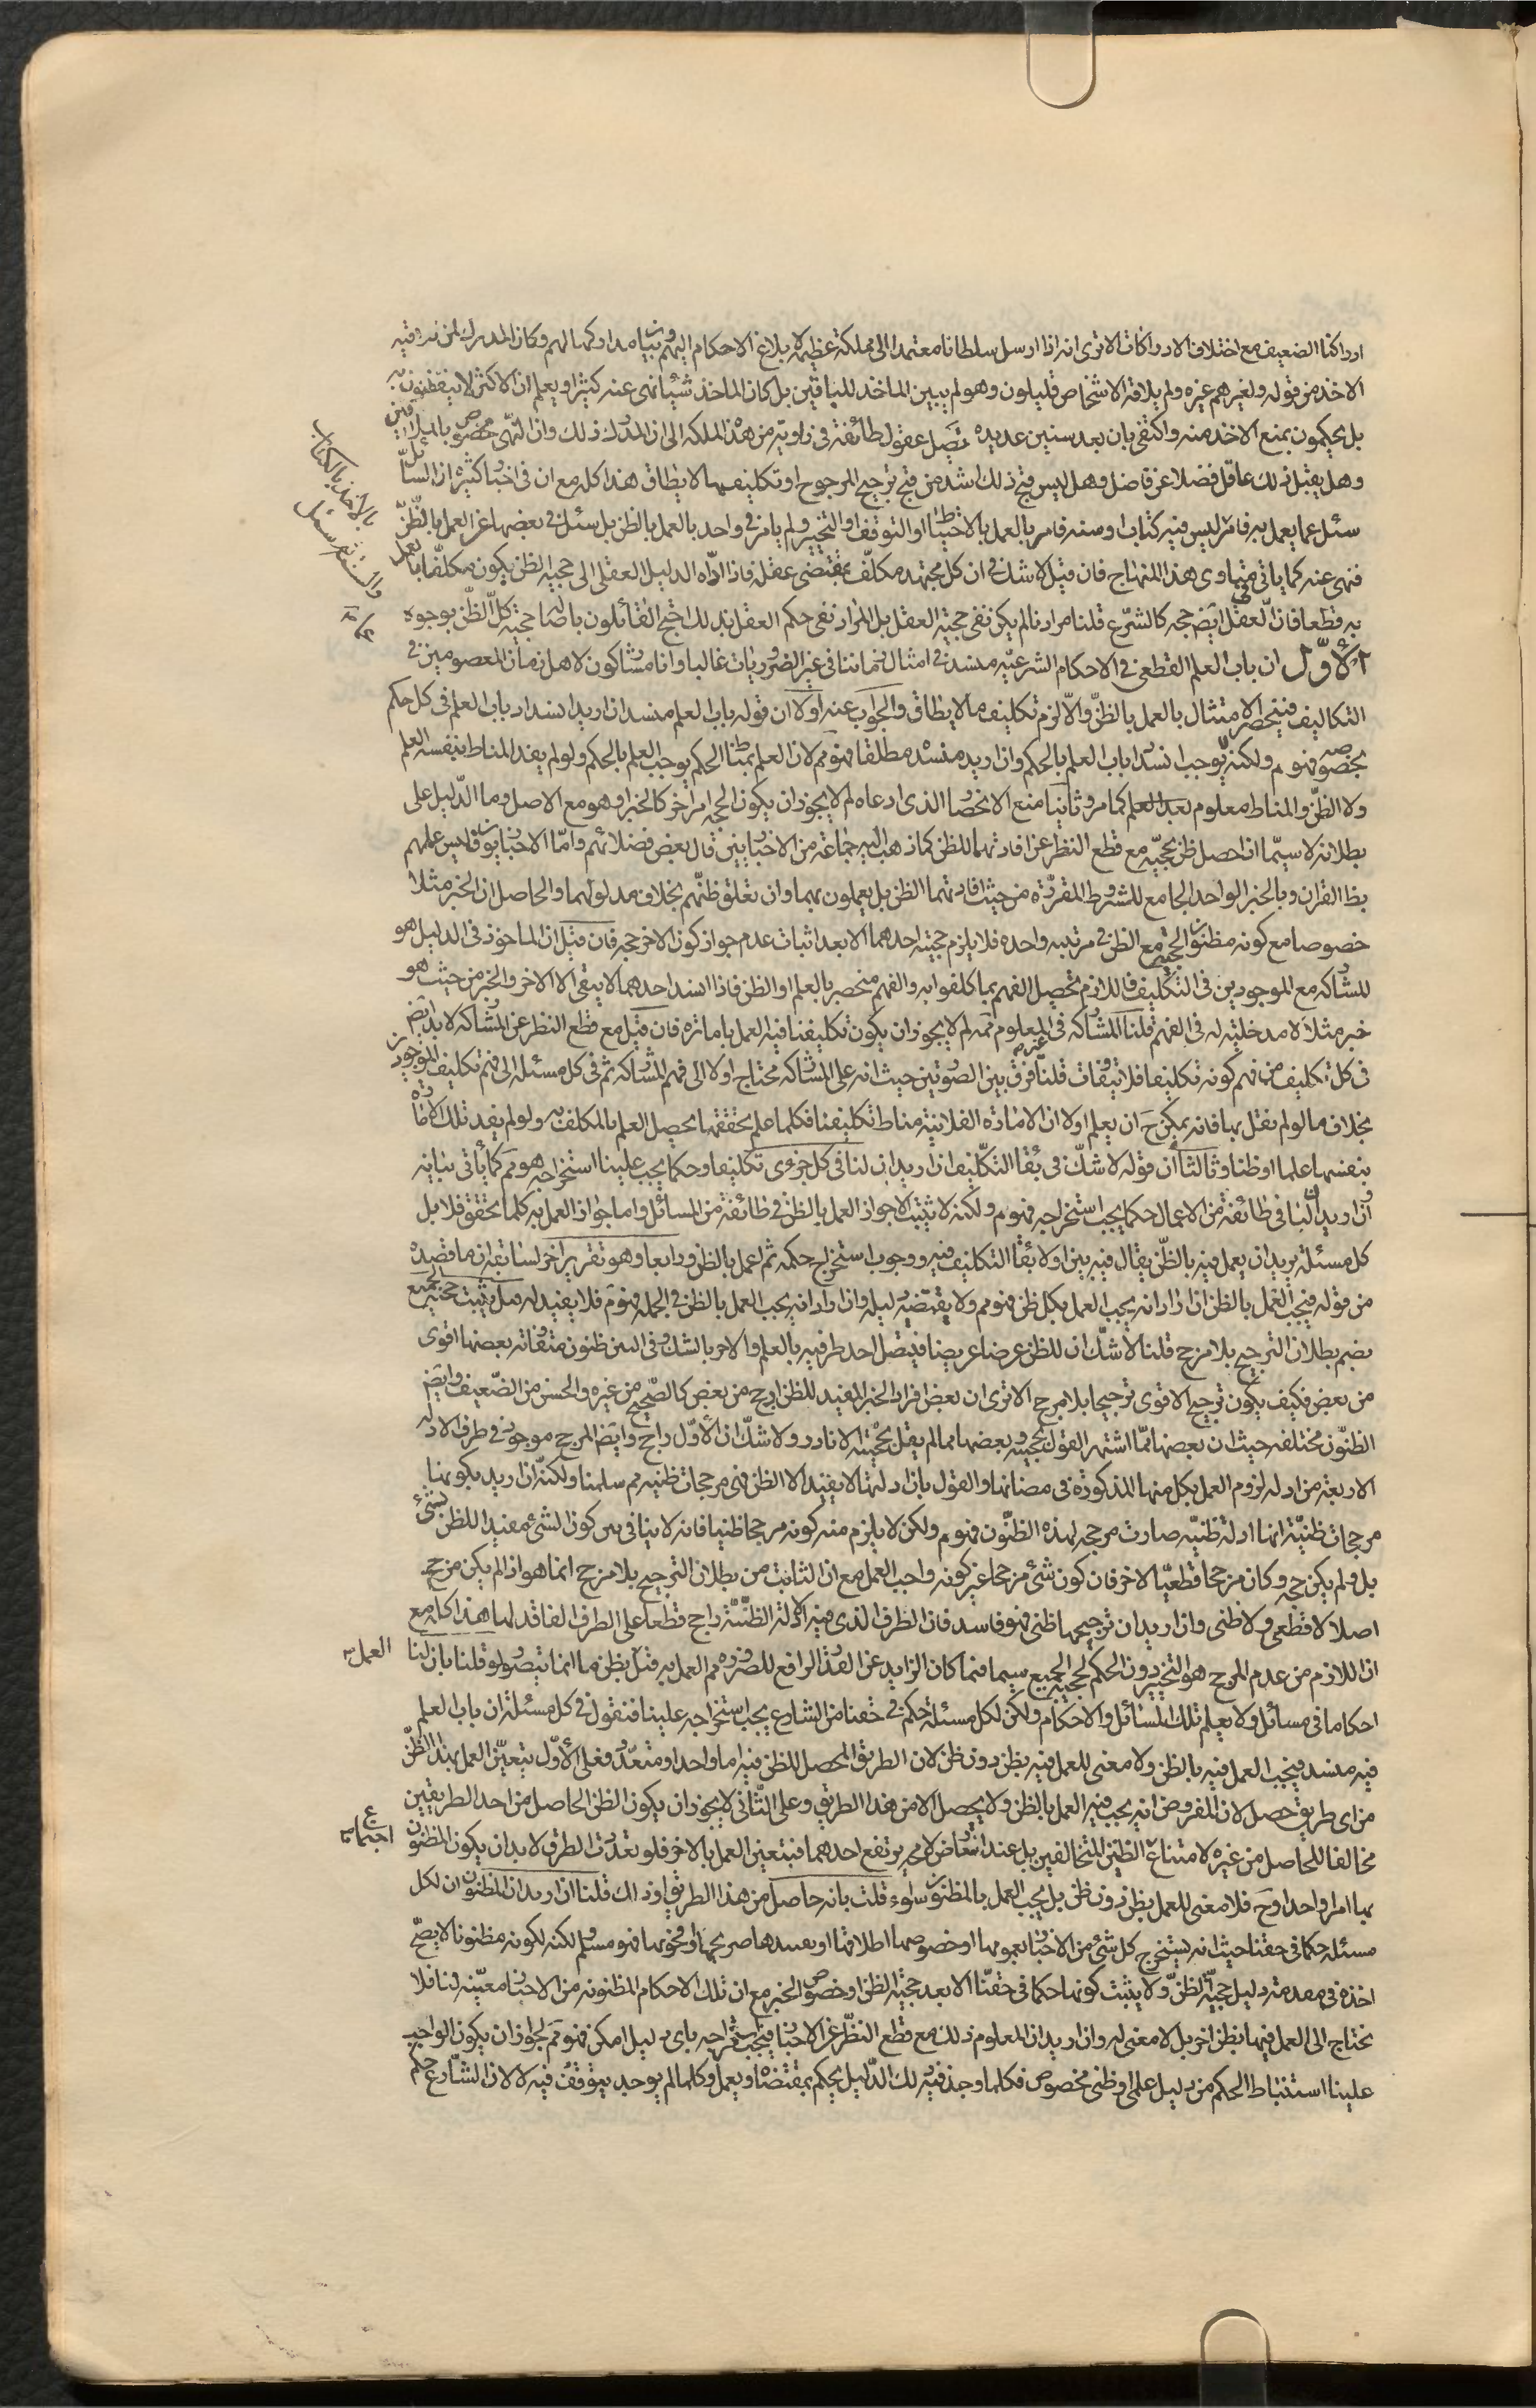 ادراكنا الضعيف مع اختلاف الادراكات الا ترى انه اذا ارسل سلطانا معتمدا الى مملكة عظيمة لابلاغ الاحكام اليهم وبيان مداركها لهم وكان المدرك لمن
الاخذ من قوله ولغيرهم غيره ولم يلاقه الا شخاص قليلون وهو لم يبين الماخذ للباقين بل كان الماخذ شيئا نهى عنه كثيرا ويعلم ان الاكثر لا يتفطنون به
بل يحكمون بمنع الاخذ منه واكتفى بان بعد سنين عديدة تصل عقول طائفة فى زاوية من هذه المملكة الى ان المدرك ذلك وان النهى مخصوص بالملاقين
وهل يقبل ذلك عاقل فضلا عن فاضل وهل ليس قبح ذلك اشد من قبح ترجيح المرجوح او تكليف ما لا يطاق هذا كله مع ان فى اخبار كثيرة ان السائل
سئل عما يعمل به فامر ليس فيه كتاب او سنة فامر بالعمل بالاحتياط او التوقف او التخيير ولم يامر فى واحد بالعمل بالظن بل سئل فى بعضها عن العمل بالظن
فنهى عنه كما ياتى فى مطاوى هذا المنهاج فان قيل لا شك فى ان كل مجتهد مكلف بمقتضى عقله فاذا اداه الدليل العقلى الى حجية الظن يكون مكلفا بالعمل
به قطعا فان العقل ايض حجة كالشرع قلنا مرادنا لم يكن نفى حجية العقل بل المراد نفى حكم العقل بذلك احتج القائلون باصالة حجية كل الظن بوجوه
الاول ان باب العلم القطعى فى الاحكام الشرعية منسد فى امثال زماننا فى غير الضروريات غالبا وانا مشاركون لاهل زمان المعصومين فى
التكاليف فينحصر الامتثال بالعمل بالظن والا لزم تكليف ما لا يطاق والجواب عنه اولا ان قوله باب العلم منسد ان اريد انسداد باب العلم فى كل حكم
بخصوصه فهو م ولكنه لا يوجب انسداد باب العلم بالحكم وان اريد منسد مطلقا فهو مم لان العلم بمناط الحكم يوجب العلم بالحكم ولو لم يفد المناط بنفسه العلم
ولا الظن والمناط معلوم بعد العلم كما مر وثانيا منع الانحصار الذى ادعاه لم لا يجوز ان يكون الحجة امرا اخر كالخبر او هو مع الاصل وما الدليل على
بطلانه لا سيما اذا حصل ظن بحجيته مع قطع النظر عن افادتهما للظن كما ذهب اليه جماعة من الاخباريين قال بعض فضلائهم واما الاخباريون فليس عملهم
بظاهر القران وبالخبر الواحد الجامع للشروط المقررة من حيث افادتهما الظن بل يعملون بهما وان تعلق ظنهم بخلاف مدلولهما والحاصل ان الخبر مثلا
خصوصا مع كونه مظنون الحجية مع الظن فى مرتبة واحدة فلا يلزم حجية احدهما الا بعد اثبات عدم جواز كون الاخر حجة فان قيل ان الماخوذ فى الدليل هو
المشاركة مع الموجودين فى التكليف فاللازم تحصيل الفهم بما كلفوا به والفهم منحصر بالعلم او الظن فاذا انسد احدهما لا يبقى الا الاخر والخبر من حيث هو
خبر مثلا لا مدخلية له فى الفهم قلنا المشاركة فى المعلوم فمم لم لا يجوز ان يكون تكليفنا فيه العمل بامارة فان قيل مع قطع النظر عن المشاركة لا بد ايض
فى كل تكليف من فهم كونه تكليفا فلا تفاوت قلنا فرق بين الصورتين حيث انه على المشاركة محتاج اولا الى فهم المشاركة ثم فى كل مسئلة الى فهم تكليف الموجودين
بخلاف ما لو لم نقل بها فانه يمكن ح ان يعلم اولا ان الامارة الفلانية مناط تكليفنا فكلما علم بتحققها يحصل العلم بالمكلف به ولو لم يفد تلك الامارة
بنفسها علما او ظنا وثالثا ان قوله لا شك فى بقاء التكليف ان اريد ان لنا فى كل جزئى تكليفا وحكما يجب علينا استخراجه فهو مم كما ياتى بيانه
وان اريد ان لنا فى طائفة من الاعمال حكما يجب استخراجه فهو م ولكنه لا يثبت الا جواز العمل بالظن فى طائفة من المسائل واما جواز العمل به كلما تحقق فلا بل
كل مسئلة يريد ان يعمل فيه بالظن يقال فيه بين اولا بقاء التكليف فيه ووجوب استخراج حكمه ثم اعمل بالظن ورابعا وهو تقرير اخر لسابقه ان ما قصده
من قوله فيجب العمل بالظن ان اراد انه يجب العمل بكل ظن فهو مم ولا يقتضيه دليله وان اراد انه يجب العمل بالظن فى الجملة فهو م فلا يفيد له قيل يثبت حجية الجميع
بضم بطلان الترجيح بلا مرجح قلنا لا شك ان للظن عرضا عريضا فيتصل احد طرفيه بالعلم والاخر بالشك وفى البين ظنون متفاوتة بعضها اقوى
من بعض فكيف يكون ترجيح الاقوى ترجيحا بلا مرجح الا ترى ان بعض افراد الخبر المفيد للظن ارجح من بعض كالصحيح من غيره والحسن من الضعيف وايض
الظنون مختلفة حيث ان بعضها مما اشتهر القول بحجيته وبعضها مما لم يقل بحجيته الا نادر ولا شك ان الاول راجح وايض المرجح موجود فى طرف الادلة
الاربعة من ادلة لزوم العمل بكل منها المذكورة فى مضانها والقول بان ادلتها لا يفيد الا الظن فهى مرجحات ظنية مم سلمنا ولكنه ان اريد بكونها
مرجحات ظنية انها ادلة ظنية صارت مرجحة لهذه الظنون فهو م ولكن لا يلزم منه كونه مرجحا ظنيا فانه لا ينافى بين كون الشئ مفيدا للظن بشئ
بل ولم يكن حجة وكان مرجحا قطعيا لاخر فان كون شئ مرجحا غير كونه واجب العمل مع ان الثابت من بطلان الترجيح بلا مرجح انما هو اذا لم يكن مرجح
اصلا لا قطعى ولا ظنى وان اريد ان ترجيحها ظنى فهو فاسد فان الطرف الذى فيه الادلة الظنية راجح قطعا على الطرف الفاقد لها هذا كله مع
ان اللازم من عدم المرجح هو التخيير دون الحكم بحجية الجميع سيما فيما كان الزايد عن القدر الرافع للضرورة مم العمل به قيل بظن ما انما يتصور لو قلنا بان لنا
احكاما فى مسائل ولا يعلم تلك المسائل والاحكام ولكن لكل مسئلة حكم فى حقنا من الشارع يجب استخراجه علينا فنقول فى كل مسئلة ان باب العلم
فيه منسد فيجب العمل فيه بالظن ولا معنى للعمل فيه بظن دون ظن لان الطريق المحصل للظن فيه اما واحد او متعدد فعلى الاول يتعين العمل بهذا الظن
من اى طريق حصل لان المفروض انه يجب فيه العمل بالظن ولا يحصل الا من هذا الطريق وعلى الثانى لا يجوز ان يكون الظن الحاصل من احد الطريقين
مخالفا للحاصل من غيره لامتناع الظنين المتخالفين بل عند التعارض لا محة يرتفع احدهما فيتعين العمل بالاخر فلو تعددت الطرق لا بد ان يكون المظنون
بها امرا واحدا وح فلا معنى للعمل بظن دون ظن بل يجب العمل بالمظنون سواء قلت بانه حاصل من هذا الطريق او ذاك قلنا ان اريد ان المظنون ان لكل
مسئلة حكما فى حقنا حيث انه يستخرج كل شئ من الاخبار بعمومها او خصوصها اطلاقها او تقييدها صريحها او فحويها فهو مسلم لكنه لكونه مظنونا لا يصح
اخذه فى مقدمة دليل حجية الظن ولا يثبت كونها حكما فى حقنا الا بعد حجية الظن او خصوص الخبر مع ان تلك الاحكام المظنونة من الاخبار معينة لنا فلا
نحتاج الى العمل فيها بظن اخر بل لا معنى له وان اريد ان المعلوم ذلك مع قطع النظر عن الاخبار فيجب استخراجه باى دليل امكن فهو مم لجواز ان يكون الواجب
علينا استنباط الحكم من دليل علمى او ظنى مخصوص فكلما وجد فيه ذلك الدليل يحكم بمقتضاه ويعمل وكلما لم يوجد يتوقف فيه لا لان الشارع حكم
بالاخذ بالكتاب
والسنة
العمل به
اجتماع